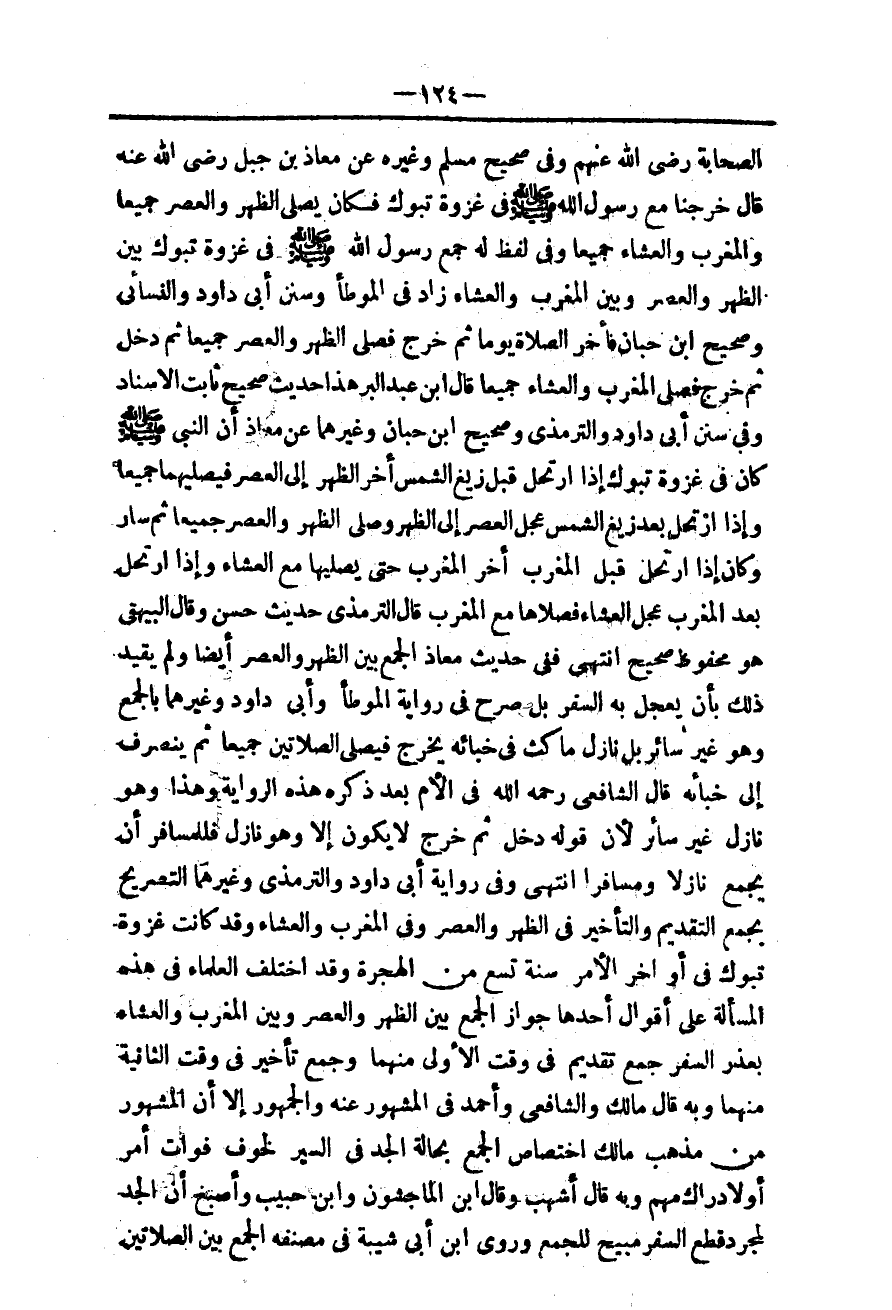 —١٢٤—
الصحابة رضى الله عنهم وفى صحيح مسلم وغيره عن معاذ بن جبل رضى الله عنه
قال خرجنا مع رسول الله ﷺ فى غزوة تبوك فكان يصلى الظهر والعصر جميعا
والمغرب والعشاء جميعا وفى لفظ له جمع رسول الله ﷺ فى غزوة تبوك بين
الظهر والعصر وبين المغرب والعشاء زاد فى الموطأ وسنن أبى داود والنسائى
وصحيح ابن حبان فأخر الصلاة يوما ثم خرج فصلى الظهر والعصر جميعا ثم دخل
ثم خرج فصلى المغرب والعشاء جميعا قال ابن عبد البر هذا حديث صحيح ثابت الاسناد
وفى سنن أبى داود والترمذى وصحيح ابن حبان وغيرهما عن معاذ أن النبى ﷺ
كان فى غزوة تبوك إذا ارتحل قبل زيغ الشمس أخر الظهر إلى العصر فيصليهما جميعا
وإذا ارتحل بعد زيغ الشمس عجل العصر إلى الظهر وصلى الظهر والعصر جميعا ثم سار
وكان إذا ارتحل قبل المغرب أخر المغرب حتى يصليها مع العشاء وإذا ارتحل
بعد المغرب عجل العشاء فصلاها مع المغرب قال الترمذى حديث حسن وقال البيهقى
هو محفوظ صحيح انتهى ففى حديث معاذ الجمع بين الظهر والعصر أيضا ولم يقيد
ذلك بأن يعجل به السفر بل صرح فى رواية الموطأ وأبى داود وغيرهما بالجمع
وهو غير سائر بل نازل ماكث فى خبائه يخرج فيصلى الصلاتين جميعا ثم ينصرف
إلى خبائه قال الشافعى رحمه الله فى الأم بعد ذكره هذه الرواية وهذا وهو
نازل غير سائر لأن قوله دخل ثم خرج لايكون إلا وهو نازل فللمسافر أن
يجمع نازلا ومسافرا انتهى وفى رواية أبى داود والترمذى وغيرهما التصريح
بجمع التقديم والتأخير فى الظهر والعصر وفى المغرب والعشاء وقد كانت غزوة
تبوك فى أواخر الأمر سنة تسع من الهجرة وقد اختلف العلماء فى هذه
المسألة على أقوال أحدها جواز الجمع بين الظهر والعصر وبين المغرب والعشاء
بعذر السفر جمع تقديم فى وقت الأولى منهما وجمع تأخير فى وقت الثانية
منهما وبه قال مالك والشافعى وأحمد فى المشهور عنه والجمهور إلا أن المشهور
من مذهب مالك اختصاص الجمع بحالة الجد فى السير لخوف فوات أمر
أولادراك مهم وبه قال أشهب وقال ابن الماجشون وابن حبيب وأصبغ أن الجد
لمجرد قطع السفر مبيح للجمع وروى ابن أبى شيبة فى مصنفه الجمع بين الصلاتين